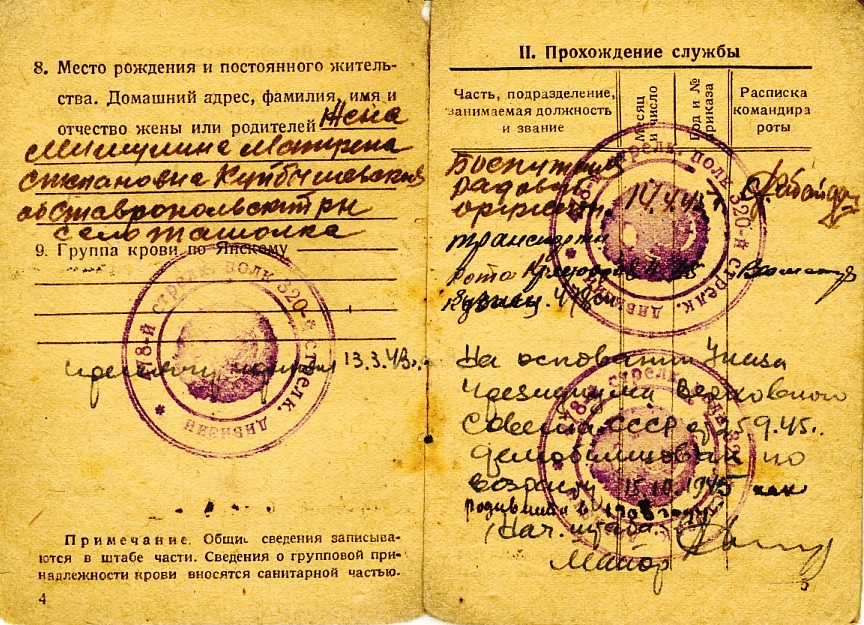 8. Место рождения и постоянного житель-
ства. Домашний адрес, фамилия, имя и
отчество жены или родителей Жена
Матрена
Степановна Куйбышевская
обСтавропольск
село Ташолка
9. Группа крови по Янскому
478-й стрелк. полк 320-й стрелк. дивизии
13.3.43г.
Примечание. Общие сведения записыва-
ются в штабе части. Сведения о групповой при-
надлежности крови вносятся санитарной частью.
4
II. Прохождение службы
Часть, подразделение,
занимаемая должность
и звание
Месяц
и число
Год и №
приказа
Расписка
командира
роты
478-й стрелк. полк 320-й стрелк. дивизии
рядовой
14.4.45
транспорт
рота 45
На основании Указа
Президиума Верховного
Совета СССР от 25.9.45г.
демобилизован по
возрасту 15.10.1945 как
родившийся в году
Нач. штаба
Майор
478-й стрелк. полк 320-й стрелк. дивизии
5